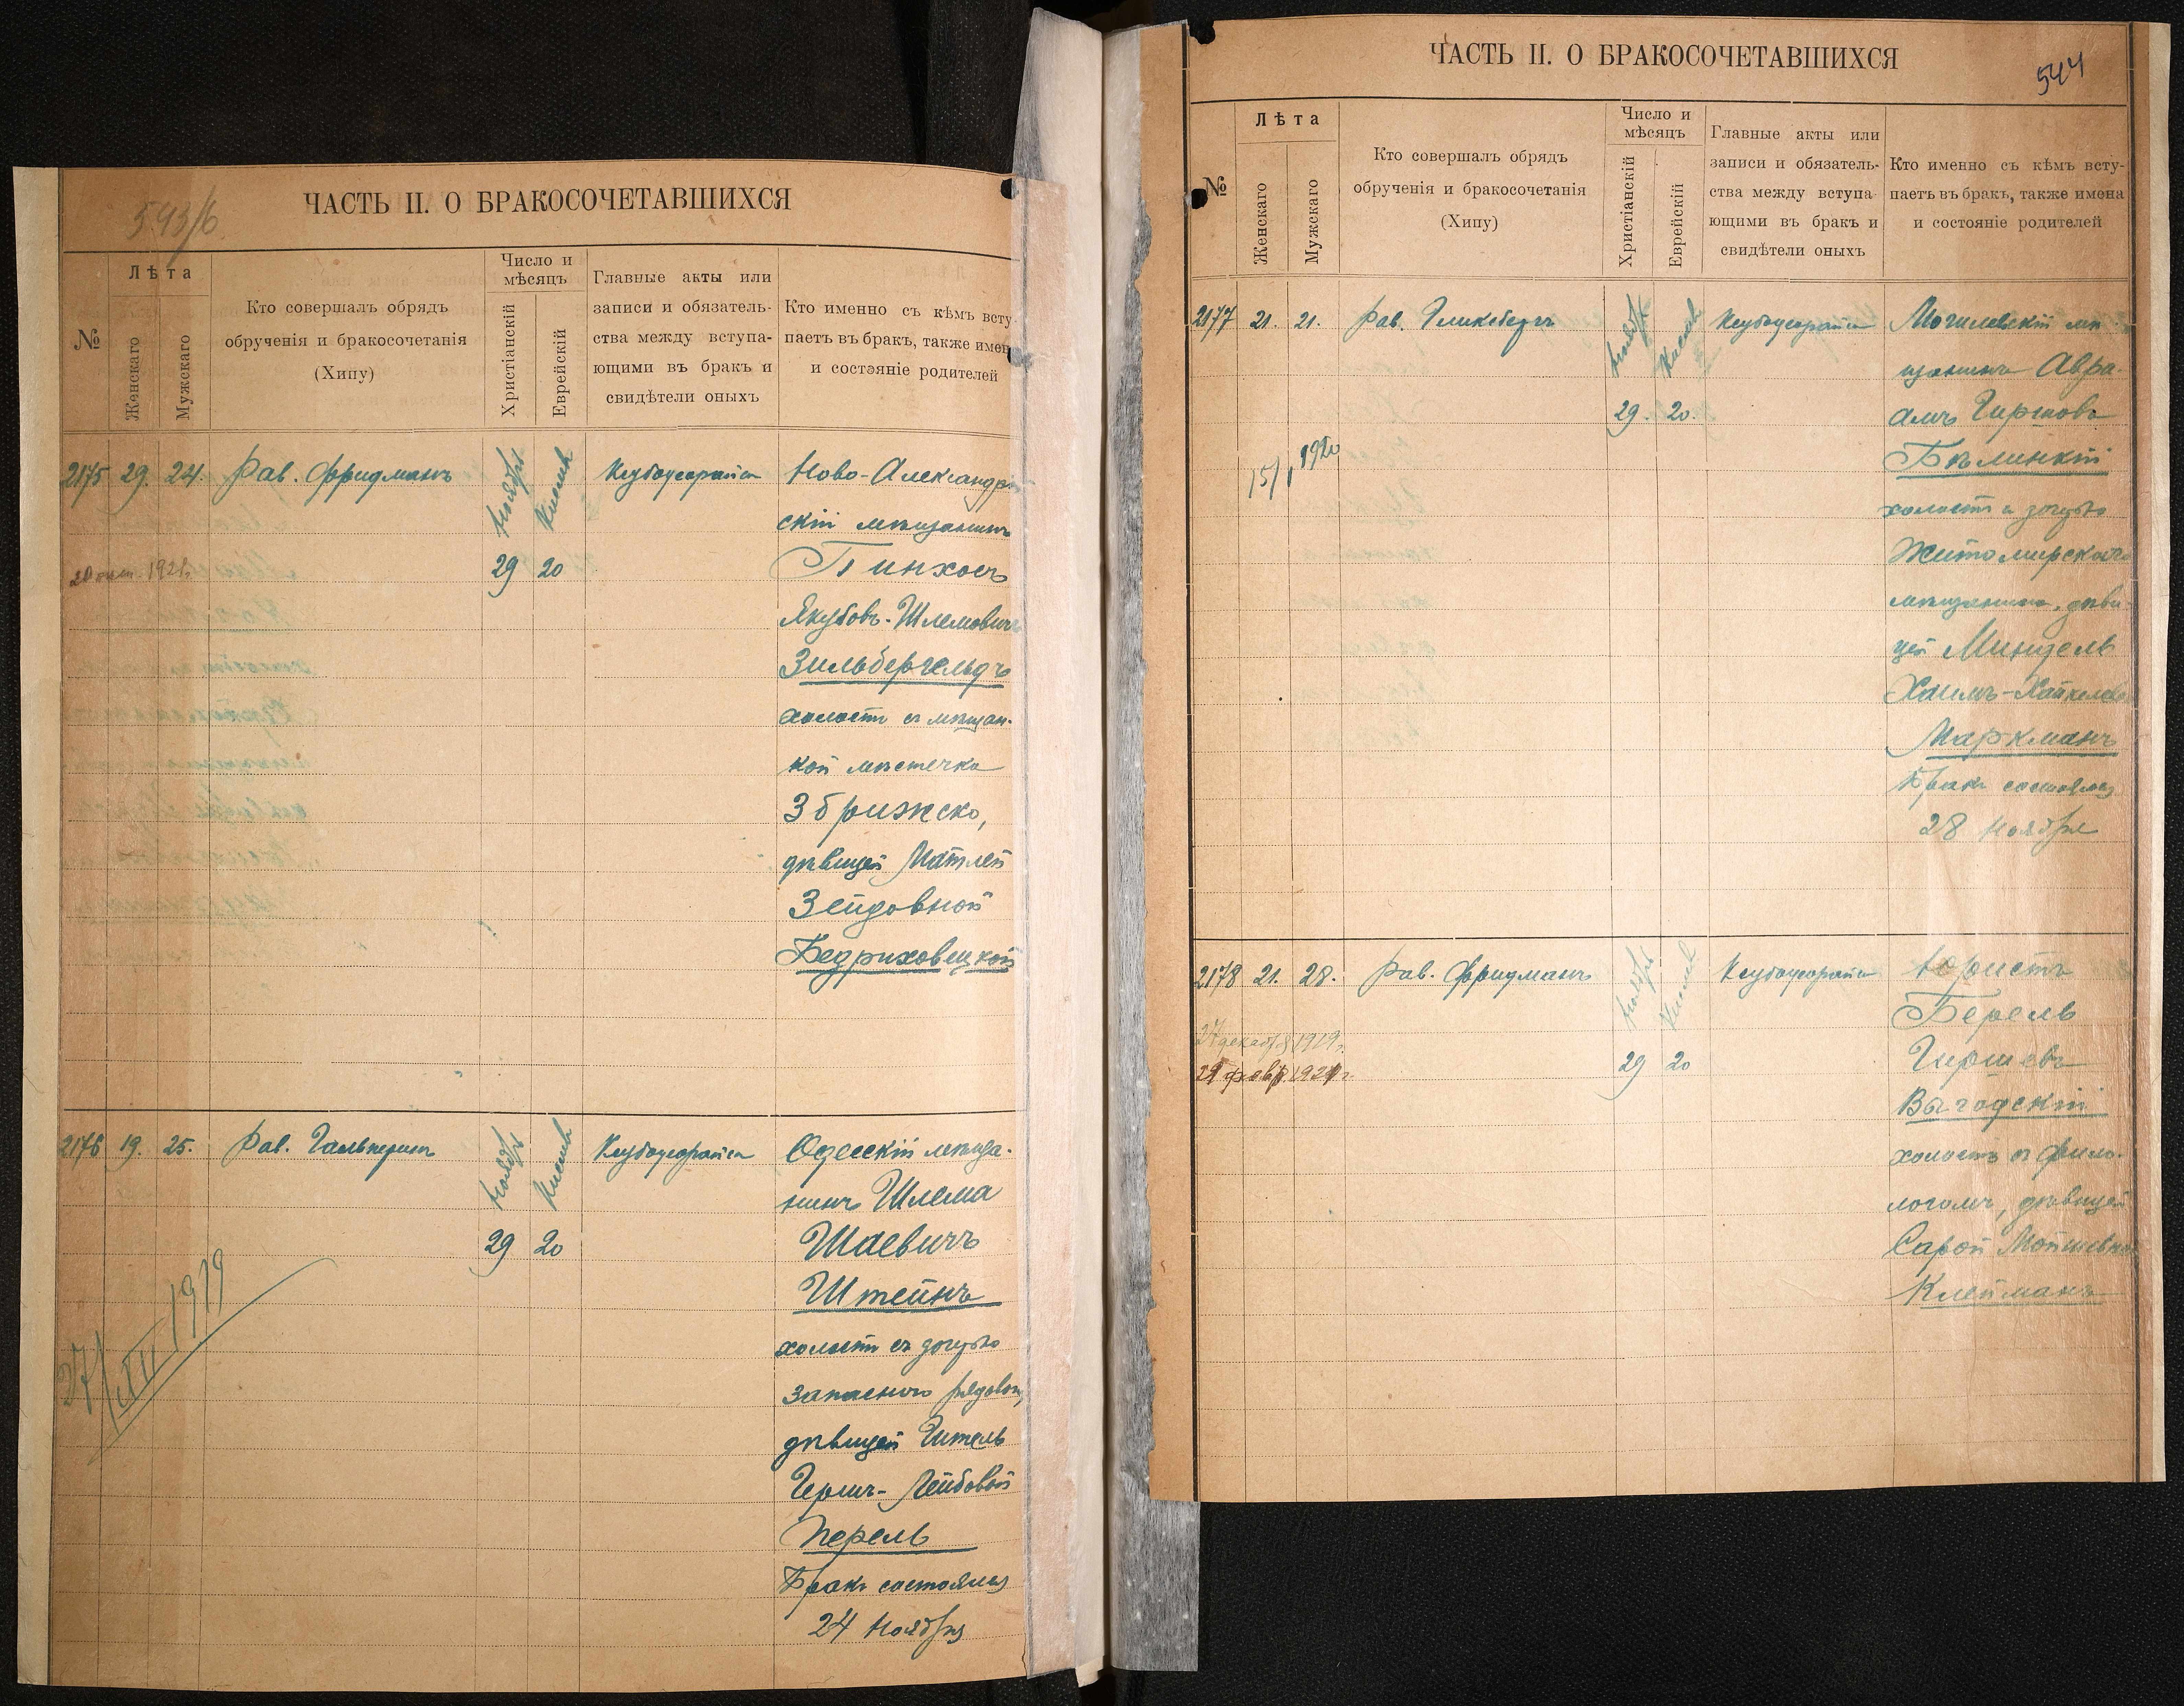 593/6
ЧАСТЬ II. О БРАКОСОЧЕТАВШИХСЯ
№
Лѣта
Женскаго
Мужскаго
Кто совершалъ обрядъ
обрученія и бракосочетанія
(Хипу)
Число и
мѣсяцъ
Христіанскій
Еврейскій
Главные акты или
записи и обязатель-
ства между вступа-
ющими въ бракъ и
свидѣтели оныхъ
Кто именно съ кѣмъ всту
паетъ въ бракъ, также имен
и состояніе родителей
2175 29. 24. Рав. Фридманъ
Ноябрь Кислевъ
29 20
Ксубодеорайса
Ново-Александрій
скій мѣщанинъ
Пинхосъ
Якубовъ-Шлемовичъ
Зильбергельдъ
холостъ съ мѣщан-
кой мѣстечка
Збрижско,
дѣвицей Матлей
Зейдовной
Бедриховецкой
1921г.
2176 19. 25. Рав. Гальперинъ
Ноябрь Кислевъ
29 20
Ксубодеорайса
Одесскій мѣща-
нинъ Шлема
Шаевичъ
Штейнъ
холостъ съ дочерью
запаснаго рядовог,
дѣвицей Гитель
Гершъ-Лейбовой
Перель
Бракъ состоялся
24 Ноября
27/XII 1919
ЧАСТЬ II. О БРАКОСОЧЕТАВШИХСЯ
544
№
Лѣта
Женскаго
Мужскаго
Кто совершалъ обрядъ
обрученія и бракосочетанія
(Хипу)
Число и
мѣсяцъ
Христіанскій
Еврейскій
Главные акты или
записи и обязатель-
ства между вступа-
ющими въ бракъ и
свидѣтели оныхъ
Кто именно съ кѣмъ всту-
паетъ въ бракъ, также имена
и состояніе родителей
2177 21. 21. Рав. Гликсбергъ
Ноябрь Кислевъ
29. 20.
Ксубодеорайса
Могилевскій мѣ
щанинъ Авра-
амъ Гиршовъ
Бѣлинкій
холостъ съ дочерью
Житомирскаго
мѣщанина, дѣви-
цей Миндель
Хаимъ-Хайкелев
Маркманъ
Бракъ состоялся
28 Ноября
15/I 1920
2178 21. 28. Рав. Фридманъ
Ноябрь Кислевъ
29 20
Ксубодеорайса
Юристъ
Берель
Гиршевъ
Выгодскій
холостъ съ фило-
логомъ, дѣвицей
Сарой Мойшевно
Клейманъ
27 декабр 1919г.
21 февр. 1921 г.